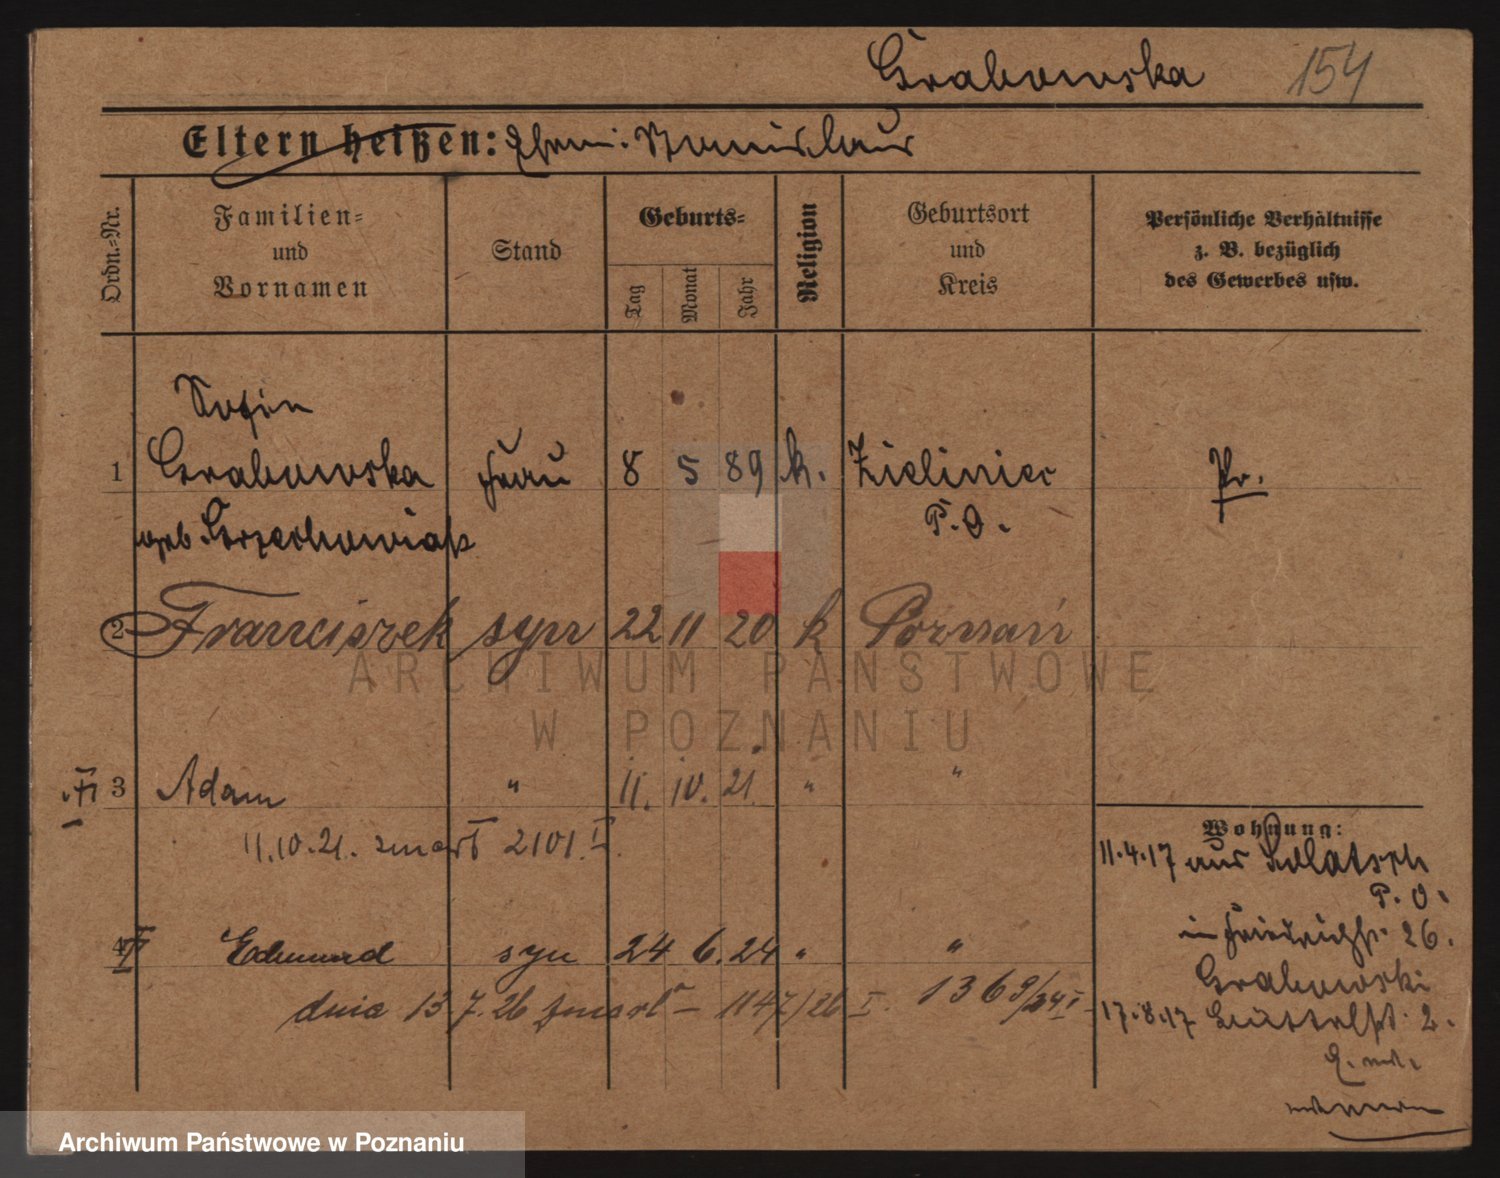 Grabowska 154
Eltern heißen: Ehem: Stanislaus
Ordn.=Nr.
Familien=
und
Vornamen
Stand
Geburts=
Tag
Monat
Jahr
Religion
Geburtsort
und
Kreis
Persönliche Verhältnisse
z. B. bezüglich
des Gewerbes usw.
Sofia
1 Grabowska Frau 8 5 89 k. Zieliniec Pr.
geb. P. O.
2 Franciszek syn 22 11 20 k Poznań
ARCHIWUM PAŃSTWOWE
W POZNANIU
3 Adam " 11. 10. 21. " "
11.10.21. zmarł 2101. I.
Wohnung:
11.4.17 aus
P. O.
in Friedrichstr. 26.
4 Edmund syn 24 6. 24 " "
Grabowski
dnia 13 7. 26 zmarł – 1147/26 I. 1369/24 I
17.8.17 2.
Archiwum Państwowe w Poznaniu